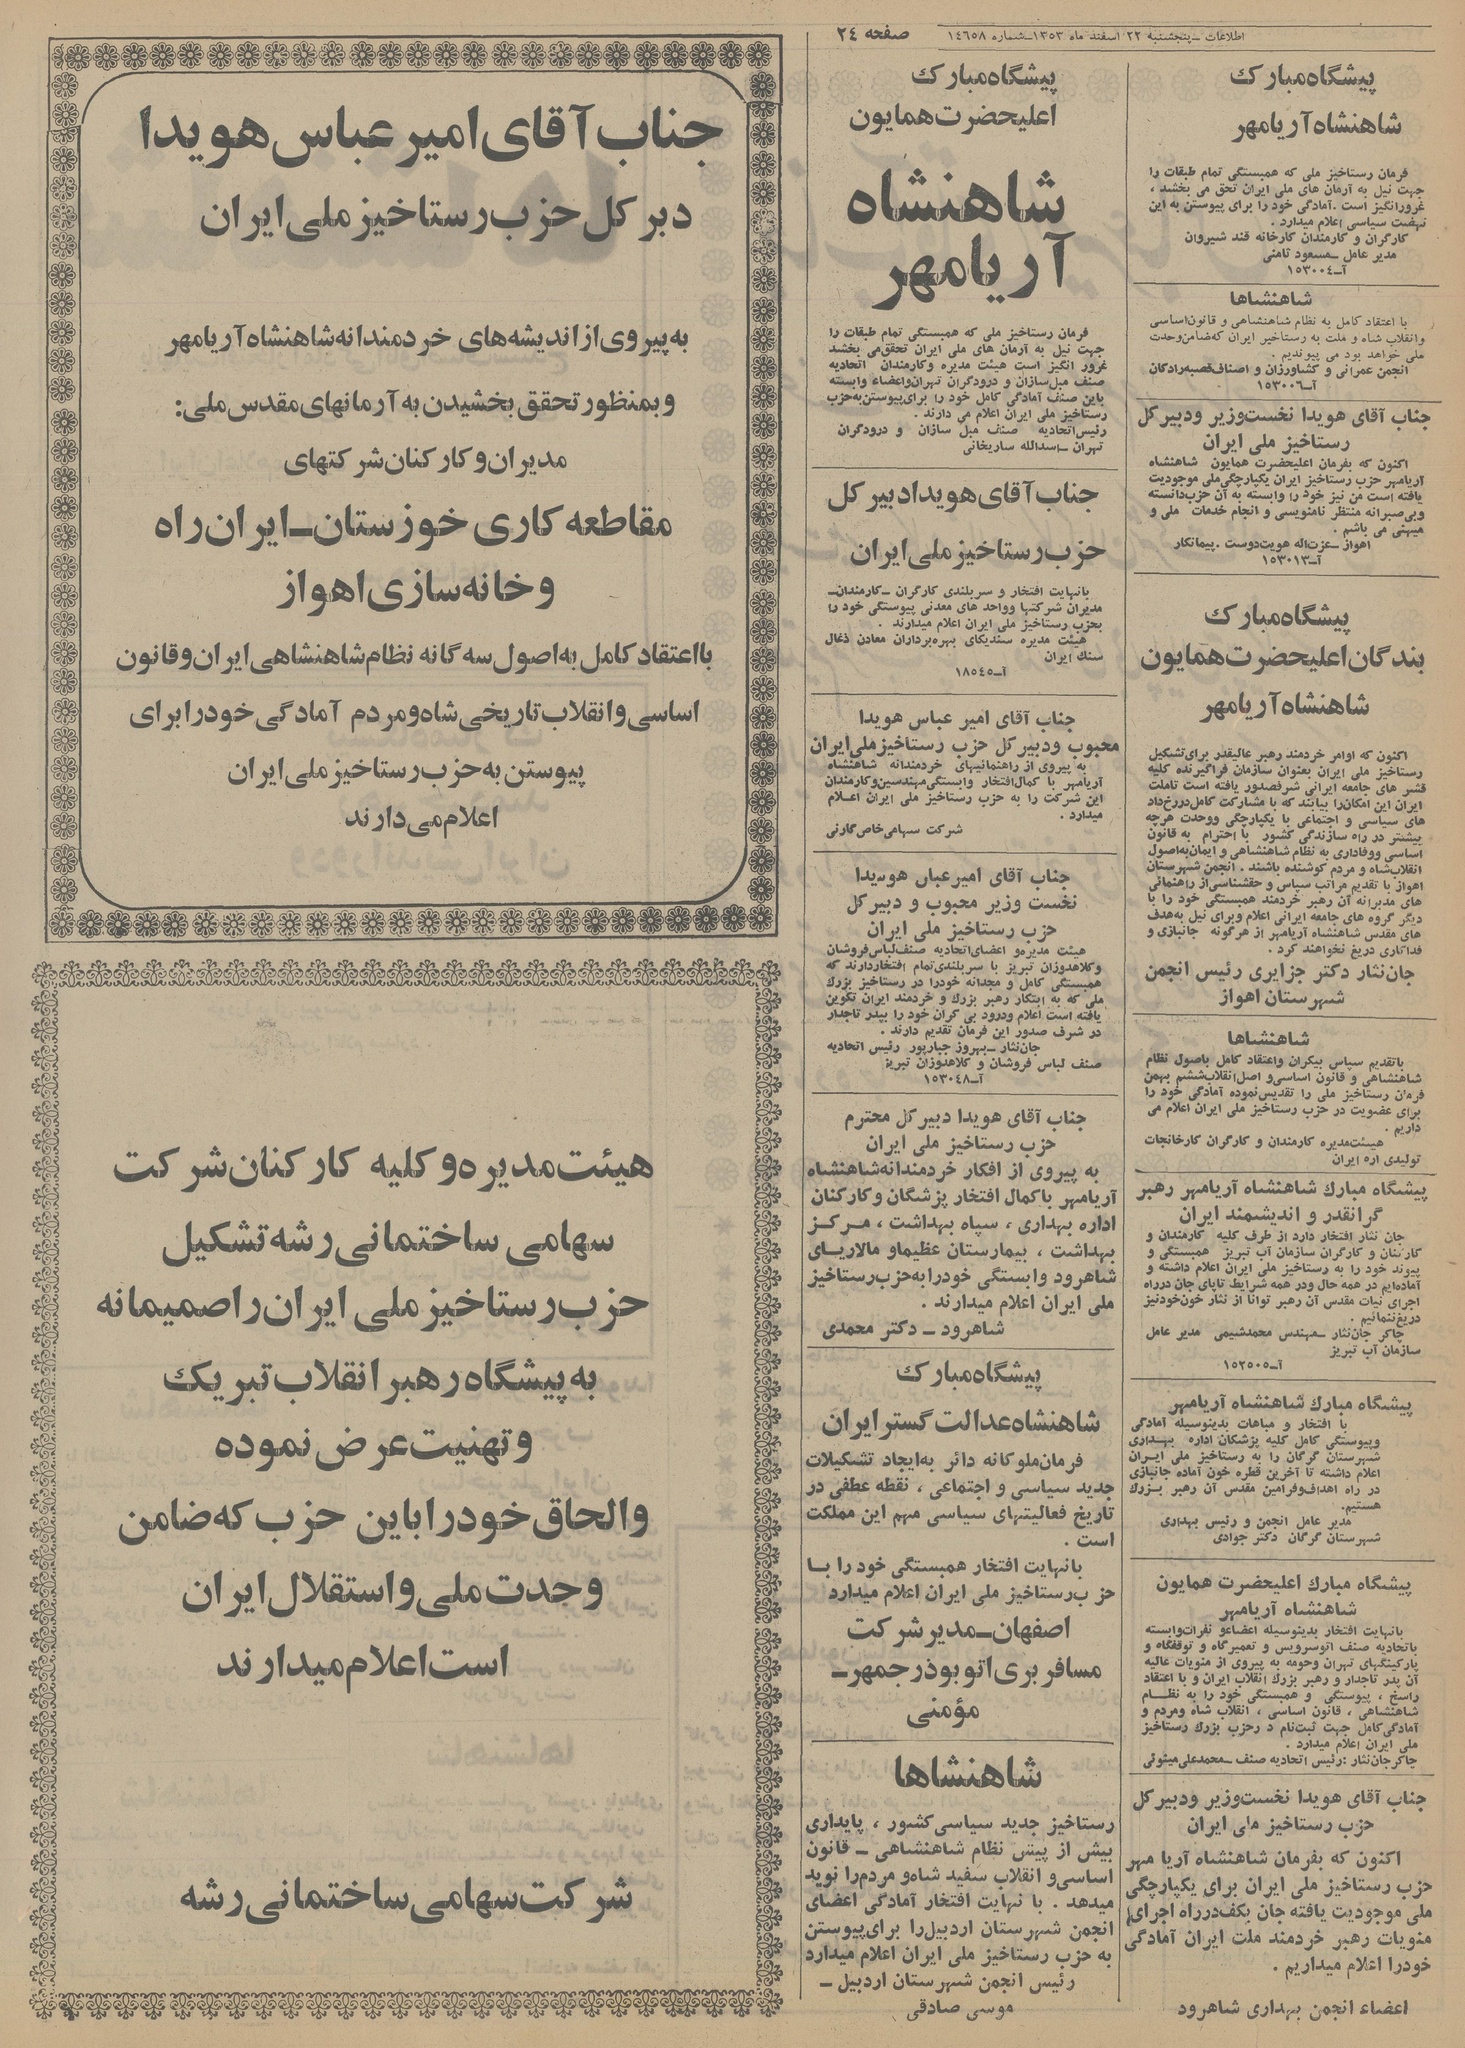 اطلاعات ـ پنجشنبه ۲۲ اسفند ماه ۱۳۵۳ ـ شماره ۱٤٦٥۸
صفحه ۲٤
پیشگاه مبارک
شاهنشاه آریامهر
فرمان رستاخیز ملی که همبستگی تمام طبقات را
جهت نیل به آرمان های ملی ایران تحق می بخشد ،
غرورانگیز است . آمادگی خود را برای پیوستن به این
نهضت سیاسی اعلام میدارد .
کارگران و کارمندان کارخانه قند شیروان
مدیر عامل ـ مسعود ثامنی
آـ۱٥۳۰۰٤
شاهنشاها
با اعتقاد کامل به نظام شاهنشاهی و قانون اساسی
وانقلاب شاه و ملت به رستاخیز ایران که ضامن وحدت
ملی خواهد بود می پیوندیم .
انجمن عمرانی و کشاورزان و اصناف قصبه رادکان
آـ۱٥۳۰۰٦
جناب آقای هویدا نخست وزیر ودبیر کل
رستاخیز ملی ایران
اکنون که بفرمان اعلیحضرت همایون شاهنشاه
آریامهر حزب رستاخیز ایران یکپارچگی ملی موجودیت
یافته است من نیز خود را وابسته به آن حزب دانسته
وبی صبرانه منتظر نامنویسی و انجام خدمات ملی و
میهنی می باشم .
اهواز ـ عزت اله هویت دوست . پیمانکار
آـ۱٥۳۰۱۳
پیشگاه مبارک
بندگان اعلیحضرت همایون
شاهنشاه آریامهر
اکنون که اوامر خردمند رهبر عالیقدر برای تشکیل
رستاخیز ملی ایران بعنوان سازمان فراگیرنده کلیه
قشر های جامعه ایرانی شرفصدور یافته است تا ملت
ایران این امکان را بیابند که با مشارکت کامل در رخداد
های سیاسی و اجتماعی با یکپارچگی ووحدت هرچه
بیشتر در راه سازندگی کشور با احترام به قانون
اساسی ووفاداری به نظام شاهنشاهی و ایمان به اصول
انقلاب شاه و مردم کوشنده باشند . انجمن شهرستان
اهواز با تقدیم مراتب سپاس و حقشناسی از راهنمائی
های مدبرانه آن رهبر خردمند همبستگی خود را با
دیگر گروه های جامعه ایرانی اعلام وبرای نیل به هدف
های مقدس شاهنشاه آریامهر از هرگونه جانبازی و
فداکاری دریغ نخواهند کرد .
جان نثار دکتر جزایری رئیس انجمن
شهرستان اهواز
شاهنشاها
باتقدیم سپاس بیکران واعتقاد کامل باصول نظام
شاهنشاهی و قانون اساسی و اصل انقلاب ششم بهمن
فرمان رستاخیز ملی را تقدیس نموده آمادگی خود را
برای عضویت در حزب رستاخیز ملی ایران اعلام می
داریم .
هیئت مدیره کارمندان و کارگران کارخانجات
تولیدی اره ایران
پیشگاه مبارک شاهنشاه آریامهر رهبر
گرانقدر و اندیشمند ایران
جان نثار افتخار دارد از طرف کلیه کارمندان و
کارکنان و کارگران سازمان آب تبریز همبستگی و
پیوند خود را به رستاخیز ملی ایران اعلام داشته و
آماده ایم در همه حال ودر همه شرایط تاپای جان درراه
اجرای نیات مقدس آن رهبر توانا از نثار خون خود نیز
دریغ ننمائیم .
چاکر جان نثار ـ مهندس محمد شیمی مدیر عامل
سازمان آب تبریز
آـ۱٥۲٥۰٥
پیشگاه مبارک شاهنشاه آریامهر
با افتخار و مباهات بدینوسیله آمادگی
وپیوستگی کامل کلیه پزشکان اداره بهداری
شهرستان گرگان را به رستاخیز ملی ایران
اعلام داشته تا آخرین قطره خون آماده جانبازی
در راه اهداف وفرامین مقدس آن رهبر بزرگ
هستیم .
مدیر عامل انجمن و رئیس بهداری
شهرستان گرگان دکتر جوادی
پیشگاه مبارک اعلیحضرت همایون
شاهنشاه آریامهر
بانهایت افتخار بدینوسیله اعضاءو نفرات وابسته
باتحادیه صنف اتوسرویس و تعمیرگاه و توقفگاه و
پارکینگهای تهران وحومه به پیروی از منویات عالیه
آن پدر تاجدار و رهبر بزرگ انقلاب ایران و با اعتقاد
راسخ ، پیوستگی و همبستگی خود را به نظام
شاهنشاهی ، قانون اساسی ، انقلاب شاه ومردم و
آمادگی کامل جهت ثبت نام د رحزب بزرگ رستاخیز
ملی ایران اعلام میدارد .
چاکر جان نثار : رئیس اتحادیه صنف ـ محمدعلی مینوئی
جناب آقای هویدا نخست وزیر ودبیر کل
حزب رستاخیز ملی ایران
اکنون که بفرمان شاهنشاه آریا مهر
حزب رستاخیز ملی ایران برای یکپارچگی
ملی موجودیت یافته جان بکف درراه اجرای
منویات رهبر خردمند ملت ایران آمادگی
خودرا اعلام میداریم .
اعضاء انجمن بهداری شاهرود
پیشگاه مبارک
اعلیحضرت همایون
شاهنشاه
آریامهر
فرمان رستاخیز ملی که همبستگی تمام طبقات را
جهت نیل به آرمان های ملی ایران تحقق می بخشد
غرور انگیز است هیئت مدیره وکارمندان اتحادیه
صنف مبل سازان و درودگران تهران واعضاء وابسته
باین صنف آمادگی کامل خود را برای پیوستن به حزب
رستاخیز ملی ایران اعلام می دارند .
رئیس اتحادیه صنف مبل سازان و درودگران
تهران ـ اسدالله ساریخانی
جناب آقای هویدا دبیر کل
حزب رستاخیز ملی ایران
بانهایت افتخار و سربلندی کارگران ـ کارمندان ـ
مدیران شرکتها وواحد های معدنی پیوستگی خود را
بحزب رستاخیز ملی ایران اعلام میدارند .
هیئت مدیره سندیکای بهره برداران معادن ذغال
سنگ ایران
آـ۱۸٥٤٥
جناب آقای امیر عباس هویدا
محبوب ودبیر کل حزب رستاخیز ملی ایران
به پیروی از راهنمائیهای خردمندانه شاهنشاه
آریامهر با کمال افتخار وابستگی مهندسین وکارمندان
این شرکت را به حزب رستاخیز ملی ایران اعلام
میدارد .
شرکت سهامی خاص گارنی
جناب آقای امیرعباس هویدا
نخست وزیر محبوب و دبیر کل
حزب رستاخیز ملی ایران
هیئت مدیره و اعضای اتحادیه صنف لباس فروشان
وکلاهدوزان تبریز با سربلندی تمام افتخار دارند که
همبستگی کامل و مجدانه خودرا در رستاخیز بزرگ
ملی که به ابتکار رهبر بزرگ و خردمند ایران تکوین
یافته است اعلام ودرود بی کران خود را بپدر تاجدار
در شرف صدور این فرمان تقدیم دارند .
جان نثار ـ بهروز جبارپور رئیس اتحادیه
صنف لباس فروشان و کلاهدوزان تبریز
آـ۱٥۳۰٤۸
جناب آقای هویدا دبیر کل محترم
حزب رستاخیز ملی ایران
به پیروی از افکار خردمندانه شاهنشاه
آریامهر باکمال افتخار پزشگان وکارکنان
اداره بهداری ، سپاه بهداشت ، مرکز
بهداشت ، بیمارستان عظیما و مالاریای
شاهرود وابستگی خودرا به حزب رستاخیز
ملی ایران اعلام میدارند .
شاهرود ـ دکتر محمدی
پیشگاه مبارک
شاهنشاه عدالت گستر ایران
فرمان ملوکانه دائر به ایجاد تشکیلات
جدید سیاسی و اجتماعی ، نقطه عطفی در
تاریخ فعالیتهای سیاسی مهم این مملکت
است .
بانهایت افتخار همبستگی خود را با
حز ب رستاخیز ملی ایران اعلام میدارد
اصفهان ـ مدیر شرکت
مسافربری اتو بوذرجمهر ـ
مؤمنی
شاهنشاها
رستاخیز جدید سیاسی کشور ، پایداری
بیش از پیش نظام شاهنشاهی ـ قانون
اساسی و انقلاب سفید شاه و مردم را نوید
میدهد . با نهایت افتخار آمادگی اعضای
انجمن شهرستان اردبیل را برای پیوستن
به حزب رستاخیز ملی ایران اعلام میدارد
رئیس انجمن شهرستان اردبیل ـ
موسی صادقی
جناب آقای امیر عباس هویدا
دبر کل حزب رستاخیز ملی ایران
به پیروی از اندیشه های خردمندانه شاهنشاه آریامهر
و بمنظور تحقق بخشیدن به آرمانهای مقدس ملی :
مدیران و کارکنان شرکتهای
مقاطعه کاری خوزستان ـ ایران راه
و خانه سازی اهواز
با اعتقاد کامل به اصول سه گانه نظام شاهنشاهی ایران و قانون
اساسی و انقلاب تاریخی شاه و مردم آمادگی خود را برای
پیوستن به حزب رستاخیز ملی ایران
اعلام می دارند
هیئت مدیره و کلیه کارکنان شرکت
سهامی ساختمانی رشه تشکیل
حزب رستاخیز ملی ایران را صمیمانه
به پیشگاه رهبر انقلاب تبریک
و تهنیت عرض نموده
و الحاق خود را باین حزب که ضامن
وحدت ملی و استقلال ایران
است اعلام میدارند
شرکت سهامی ساختمانی رشه